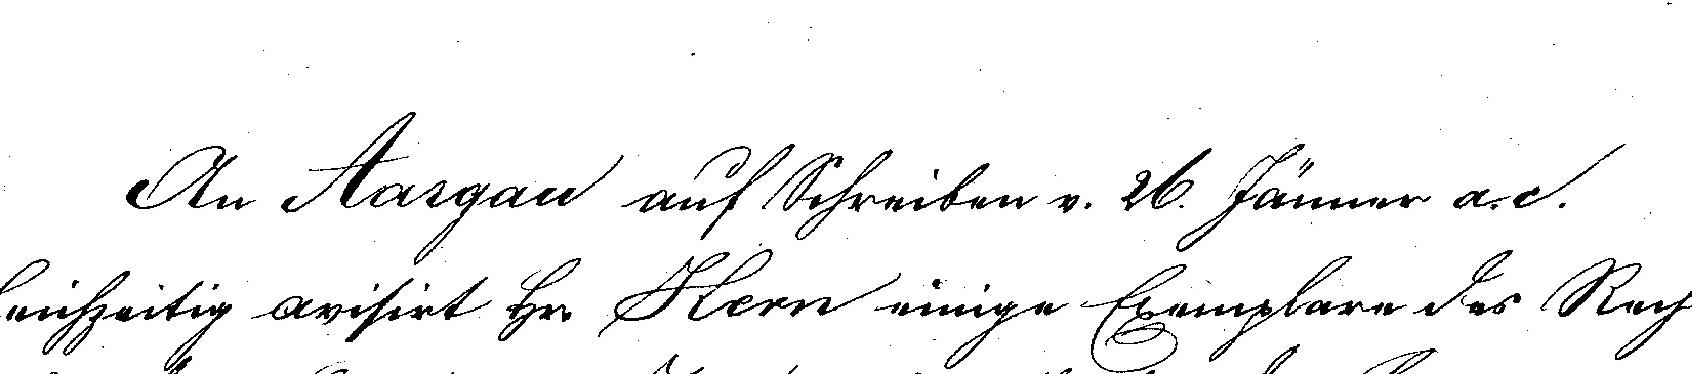 An Aargau auf Schreiben v. 26. Jänner a. c.
leichzeitig avisirt Hr. Kern einige Exemplare des Rech